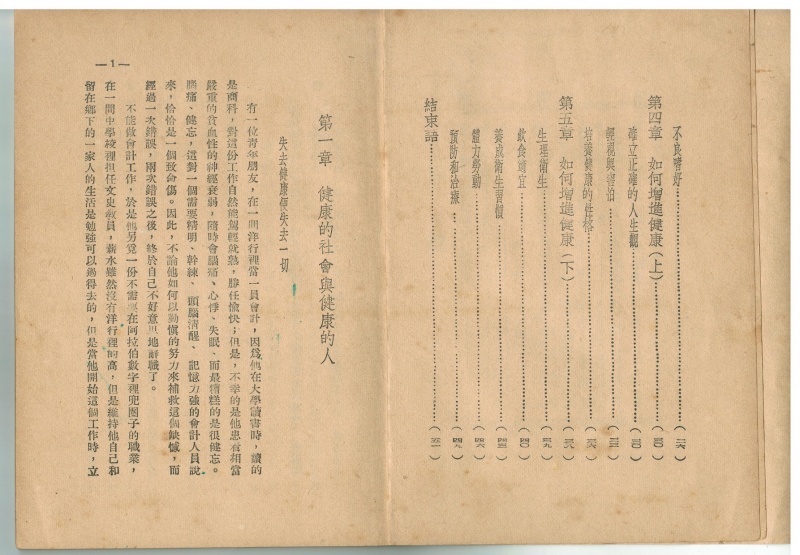 不良嗜好……(二六)
第四章　如何增進健康(上)……(三〇)
確立正確的人生觀……(三〇)
輕視與害怕……(三三)
培養健康的性格……(三六)
第五章　如何增進健康(下)……(三九)
生理衛生……(三九)
飲食適宜……(四〇)
養成衛生習慣……(四三)
體力勞動……(四六)
預防和治療……(四九)
結束語……(五一)
第一章　健康的社會與健康的人
失去健康便失去一切
有一位青年朋友，在一間洋行裡當一員會計，因爲他在大學讀書時，讀的
是商科，對這份工作自然能駕輕就熟，勝任愉快；但是，不幸的是他患着相當
嚴重的貧血性的神經衰弱，隨時會腦痛、心悸、失眠、而最糟糕的是很健忘。
腦痛、健忘，這對一個需要精明、幹練、頭腦清醒、記憶力強的會計人員說
來，恰恰是一個致命傷。因此，不論他如何以勤愼的努力來補救這個缺憾，而
經過一次錯誤，兩次錯誤之後，終於自己不好意思地辭職了。
不能做會計工作，於是他另覓一份不需要在阿拉伯數字裡兜圈子的職業，
在一間中學校裡担任文史敎員，薪水雖然沒有洋行裡的高，但是維持他自己和
留在鄉下的一家人的生活是勉強可以過得去的，但是當他開始這個工作時，立
—1—